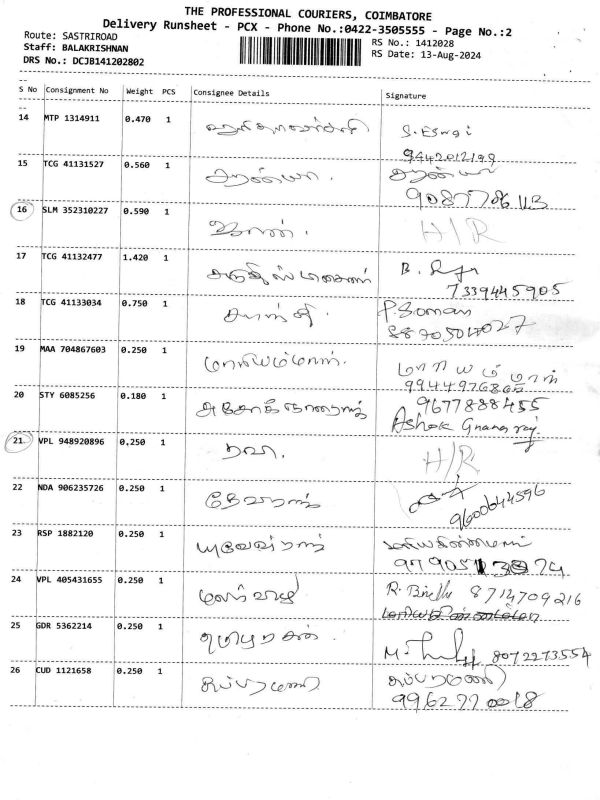 THE PROFESSIONAL COURIERS, COIMBATORE
Delivery Runsheet - PCX - Phone No.:0422-3505555 - Page No.:2
Route: SASTRIROAD
RS No.: 1412028
Staff: BALAKRISHNAN
RS Date: 13-Aug-2024
DRS No.: DCJB141202802
S No Consignment No Weight PCS Consignee Details Signature
14 MTP 1314911 0.470 1 S. Eswari
9442012199
15 TCG 41131527 0.560 1 சரண்யா. சரண்யா
90877786113
16 SLM 352310227 0.590 1 H/R
17 TCG 41132477 1.420 1 B.
7339445905
18 TCG 41133034 0.750 1 சாந்தி. P. Soman
8870504027
19 MAA 704867603 0.250 1 மாரியம்மாள். மாரியம்மாள்
20 STY 6085256 0.180 1 அசோக் ஞானராஜ் 9677888455
Ashok Gnanaraj
21 VPL 948920896 0.250 1 ரவி. H/R
22 NDA 906235726 0.250 1 தேவராஜ்
9600644596
23 RSP 1882120 0.250 1 யுவேஷ்ராஜ்
24 VPL 405431655 0.250 1 மலர்விழி R. 8714709216
25 GDR 5362214 0.250 1 M. 8072273554
26 CUD 1121658 0.250 1 சுப்பரமணி சுப்பரமணி
9962770018